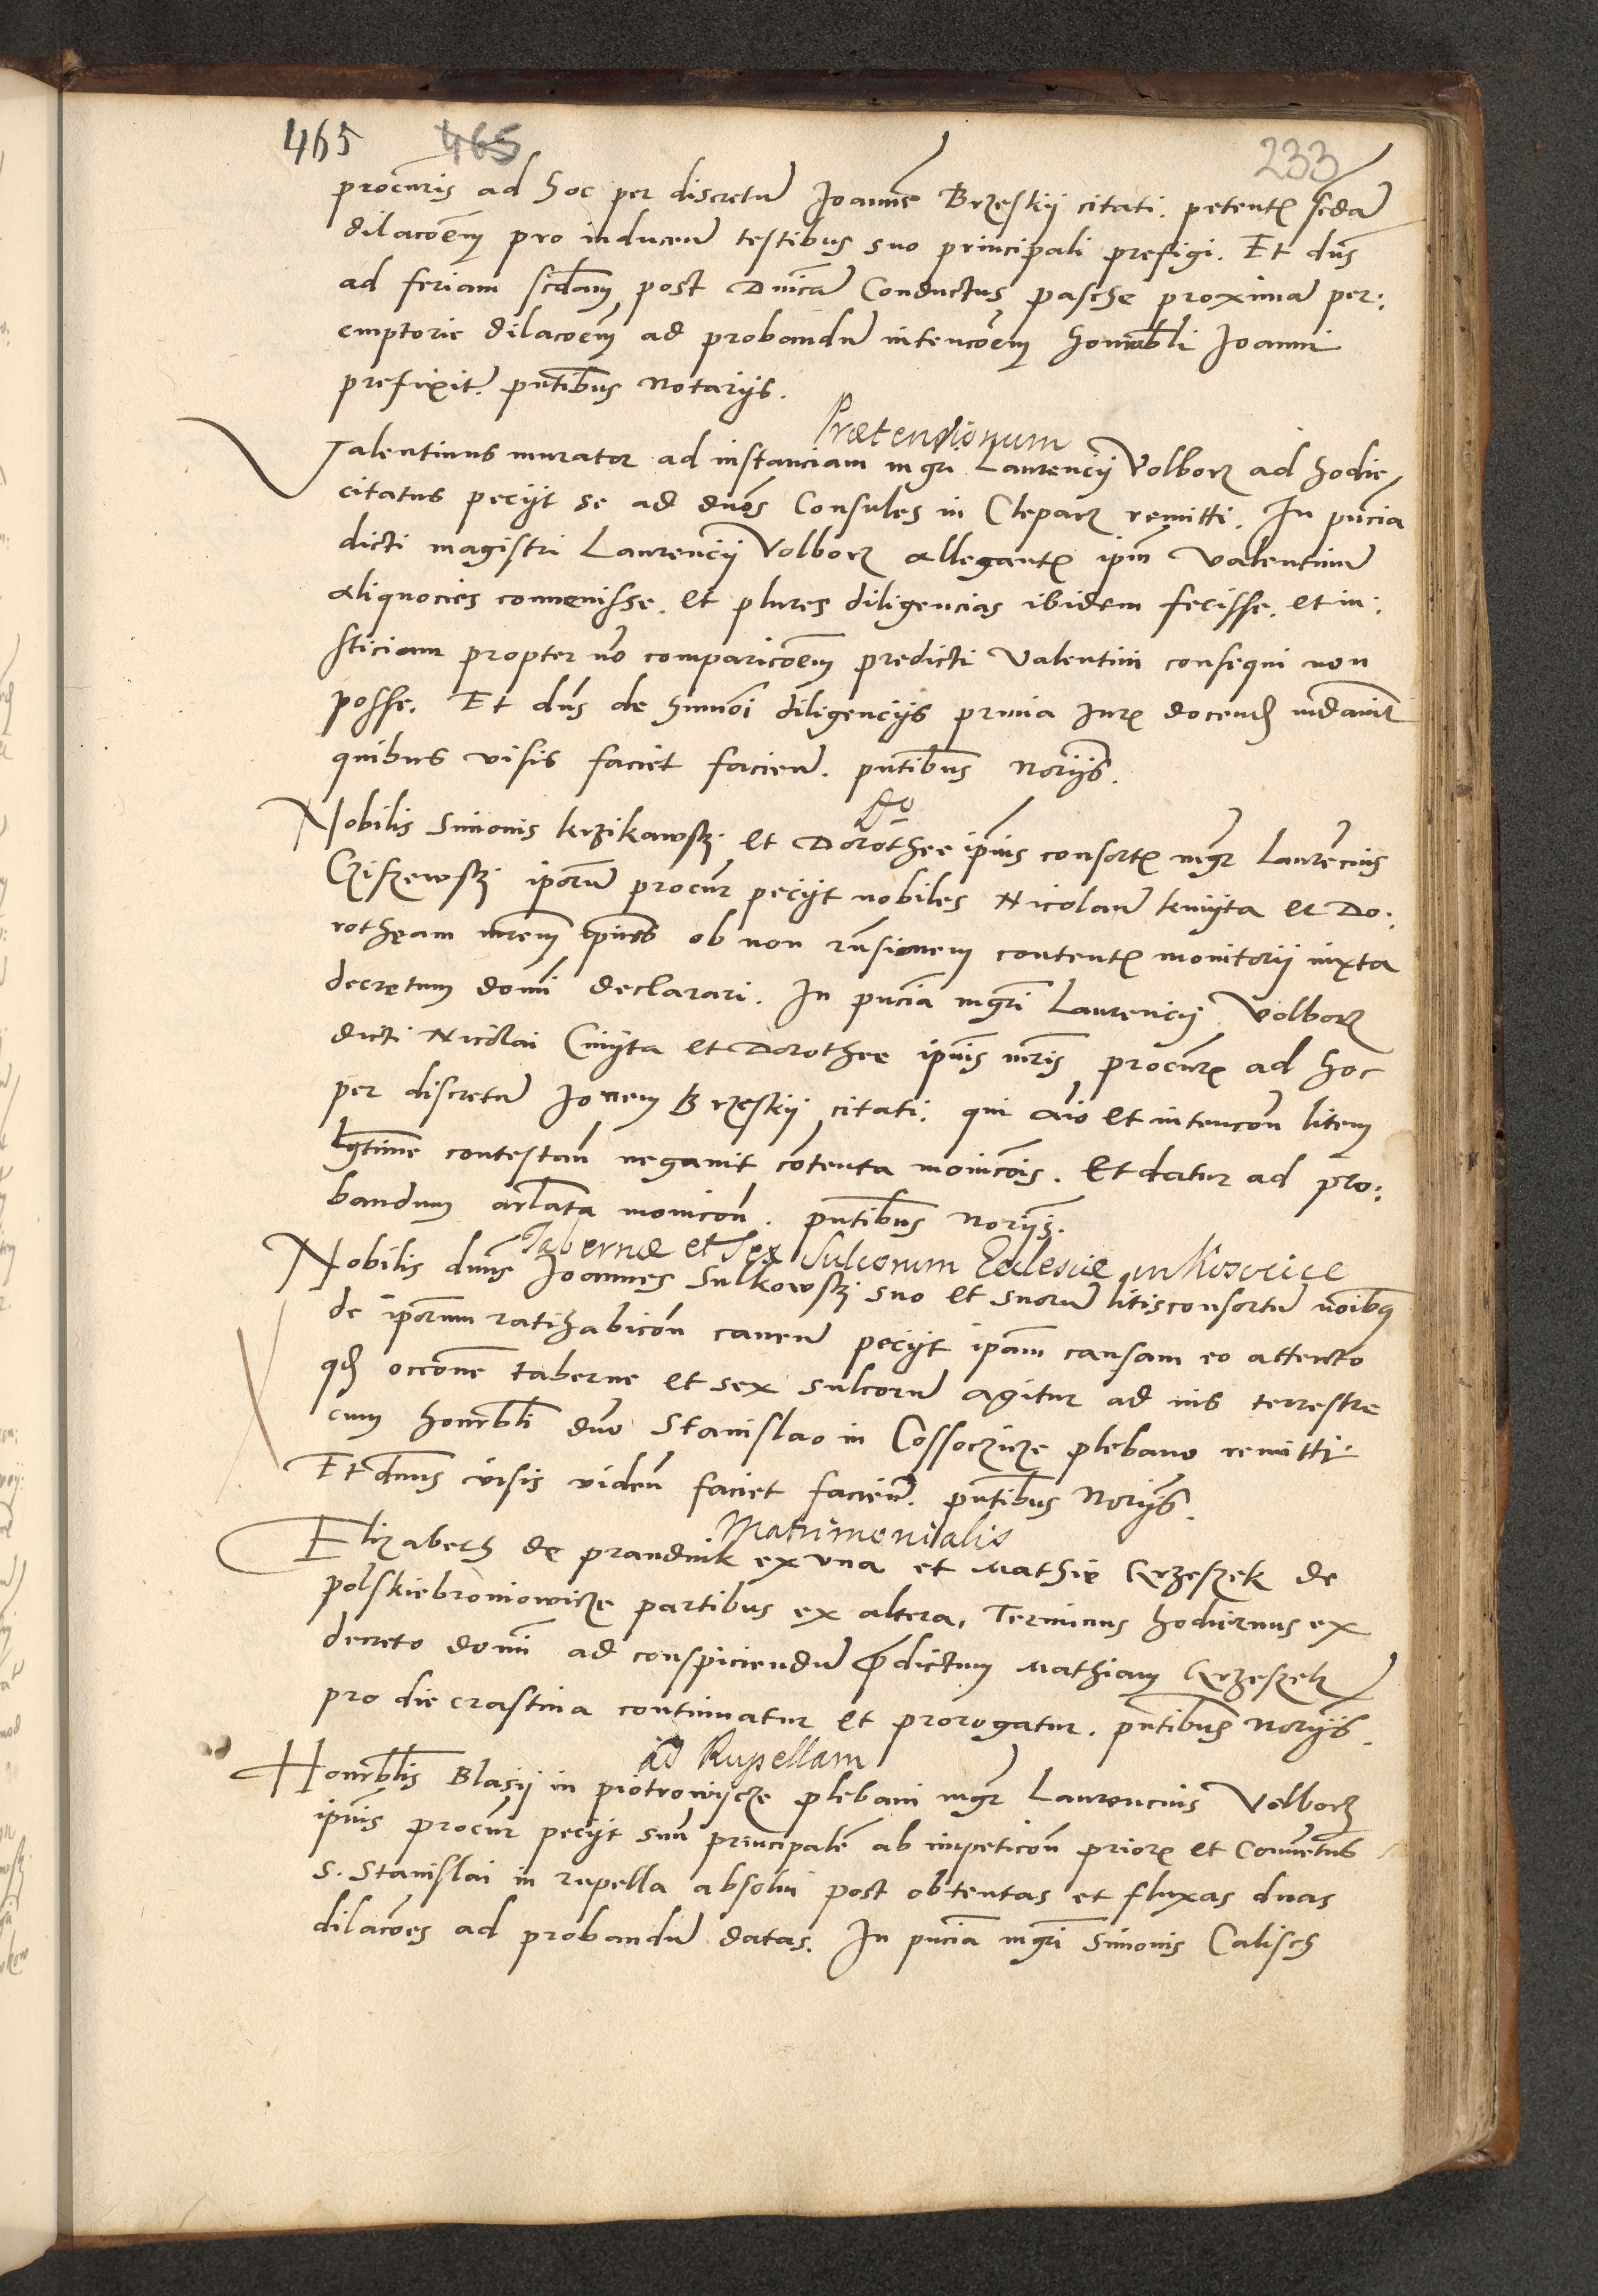 465 465 233
procuris ad hoc per discretu Joanne Brzeskij citati. petent scda
dilacoem pro inducen testibus suo principali prefigi. Et dns
ad feriam scdam post Dnica Conductus pasche proxima per:
emptorie dilacoem ad probandu intencoem honorabli Joanni
prefixit. pntibus Notarijs.
Prætensionum
Valentinus murator ad instanciam mgri Laurencij Volborz ad hodie
citatus pecijt se ad dnos Consules in Cleparz remitti. In pncia
dicti magistri Laurencij Volborz allegant ipm Valentinu
aliquocies conuenisse. et plures diligencias ibidem fecisse. et iu:
sticiam propter no comparicoem predicti Valentini consequi non
posse. Et dns de hmnoi diligencijs primia Jure docend mdauit
quibus visis faciet facien. pntibus Norijs.
Do
Nobilis Simonis krzikawsky et Dorothee ipius consort mgr Laurencius
Cziszewsky iporum procur pecijt nobiles Nicolau kmijta et Do:
rotheam mrem ipius ob non rnsionem content monitorij iuxta
decretum domi declarari. In pncia mgri Laurencij Volborz
dicti Nicolai Cmijta et Dorothee ipius mris procur ad hoc
per discretu Jonem Brzeskij citati. qui aio et intencon litem
lgtime contestan negauit cotenta monicois. Et datur ad pro:
bandum arlata monicon. pntibus Norijs.
Tabernæ et Sex Sulcorum Ecclesiæ in Kosocice
Nobilis dnus Joannes Sulkowsky suo et suoru litisconsortu noibus
de iporum ratihabicon cauen pecijt ipam causam eo attento
qd occone taberne et sex sulcoru agitur ad ius terrestre
cum honorbli dno Stanislao in Cossoczicze plebano remitti
Et dnus visis viden faciet facien. pntibus Norijs.
Matrimonialis
Elizabeth de prandnik ex vna et Mathie Krzeszek de
polskiebroniowicze partibus ex altera. Terminus hodiernus ex
decreto domi ad conspiciendu pdictum Mathiam Krzeszek
pro die crastina continuatur et prorogatur. pntibus Norijs.
ad Rupellam
Honorblis Blasij in piotrowijcze plebani mgr Laurencius Volborz
ipius procur pecijt suu principale ab impeticon prioris et Conuetus
S. Stanislai in rupella absolui post obtentas et fluxas duas
dilacoes ad probandu datas. In pncia mgri Simonis Calisch